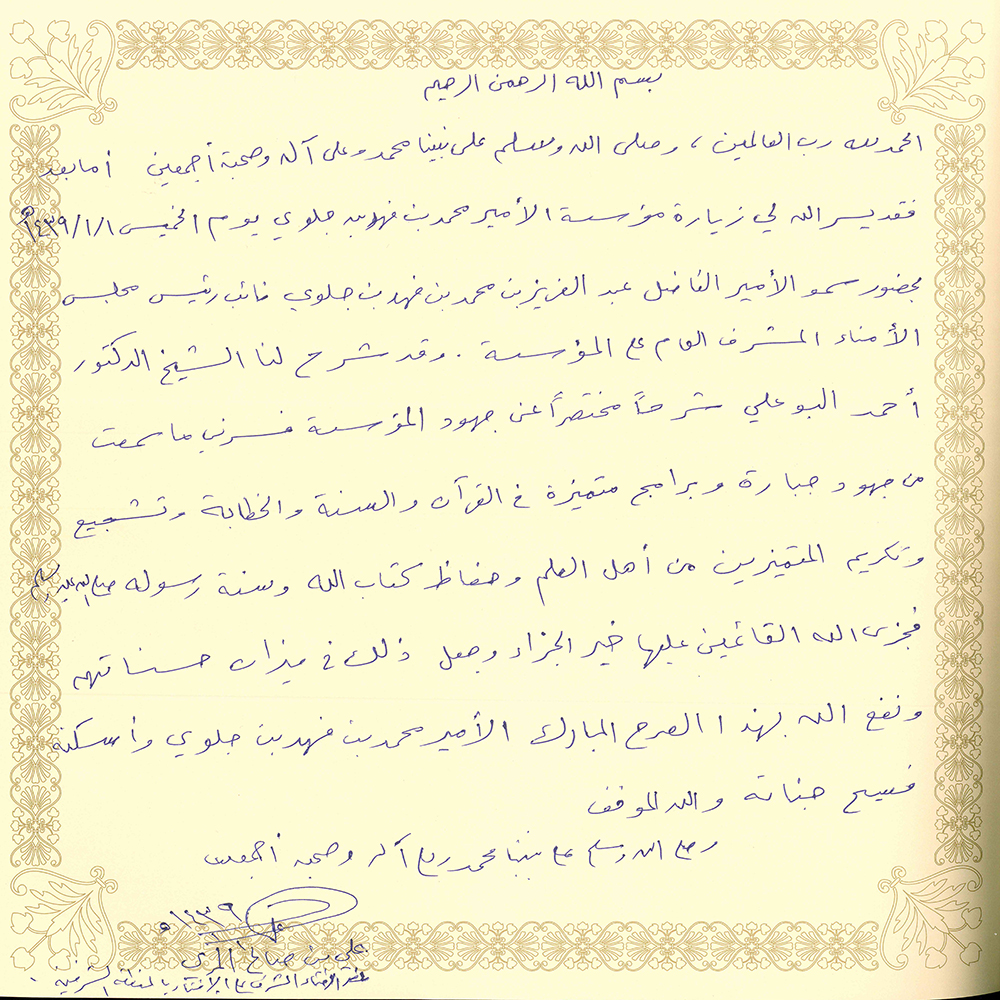 بسم الله الرحمن الرحيم
الحمد لله رب العالمين ، وصلى الله وسلم على نبينا محمد وعلى آله وصحبة أجمعين أما بعد
فقد يسر الله لي زيارة مؤسسة الأمير محمد بن فهد بن جلوي يوم الخميس ١/١/١٤٣٩هـ
بحضور سمو الأمير الفاضل عبد العزيز بن محمد بن فهد بن جلوي نائب رئيس مجلس
الأمناء المشرف العام على المؤسسة . وقد شرح لنا الشيخ الدكتور
أحمد البوعلي شرحاً مختصراً عن جهود المؤسسة فسرني ما سمعت
من جهود جبارة وبرامج متميزة في القرآن والسنة والخطابة وتشجيع
وتكريم المتميزين من أهل العلم وحفاظ كتاب الله وسنة رسوله صلى الله عليه وسلم
فجزى الله القائمين عليها خير الجزاء وجعل ذلك في ميزان حسناتهم
ونفع الله بهذا الصرح المبارك الأمير محمد بن فهد بن جلوي وأسكنه
فسيح جناته والله الموفق
وصلى الله وسلم على نبينا محمد وعلى آله وصحبه أجمعين
١٤٣٩هـ
علي بن صالح المري
الإفتاء المشرف على الإفتاء بالمنطقة الشرقية .